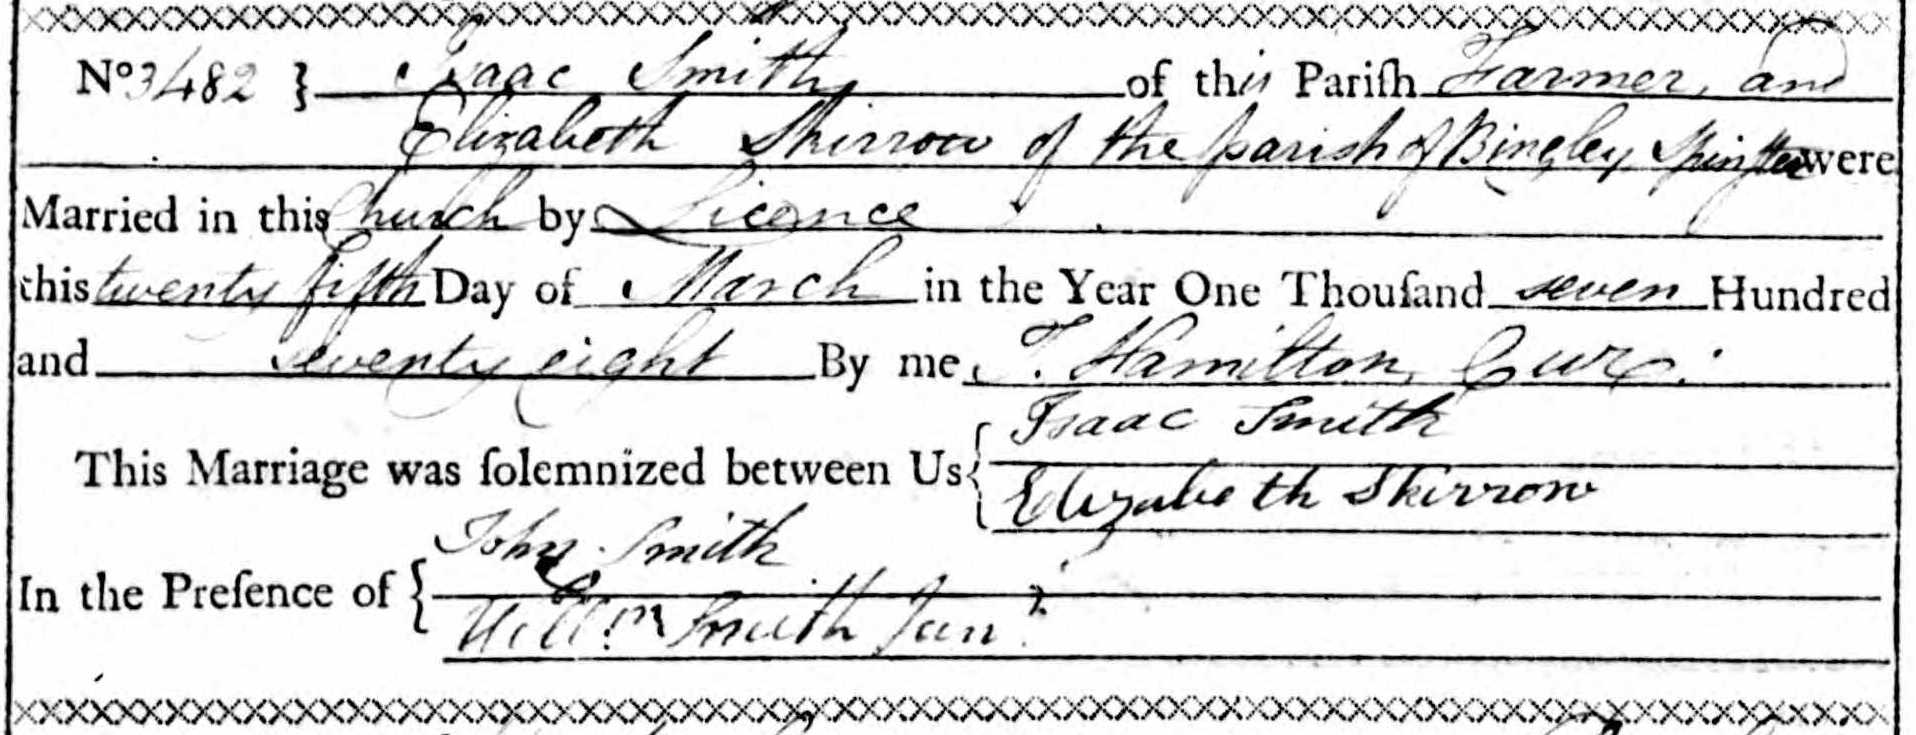 No 3482 } Isaac Smith of this Pariſh Farmer, and
Elizabeth Skirrow of the parish of Bingley Spinster were
Married in this Church by Licence
this twenty fifth Day of March in the Year One Thouſand seven Hundred
and seventy eight By me T. Hamilton, Cur:
This Marriage was ſolemnized between Us { Isaac Smith
Elizabeth Skirrow
In the Preſence of { John Smith
Willm Smith Junr